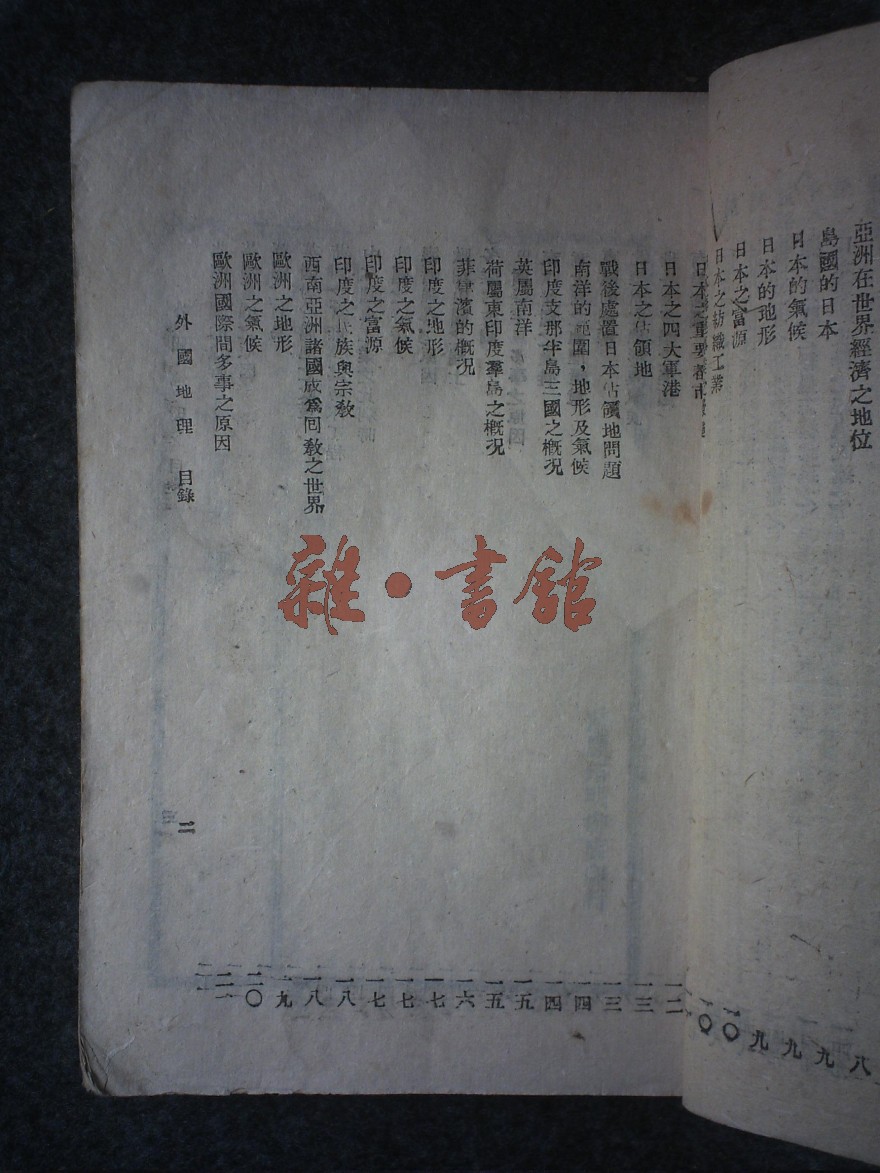 亞洲在世界經濟之地位 八
島國的日本 九
日本的氣候 九
日本的地形 九
日本之富源 一〇
日本之紡織工業 一〇
日本 重要
日本之四大軍港 一二
日本之佔領地 一三
戰後處置日本佔領地問題 一三
南洋的範圍，地形及氣候 一四
印度支那半島三國之概况 一四
英屬南洋 一五
荷屬東印度羣島之概况 一五
菲律濱的概况 一六
印度之地形 一七
印度之氣候 一七
印度之富源 一七
印度之民族與宗敎 一八
西南亞洲諸國成爲回敎之世界 一八
歐洲之地形 一九
歐洲之氣候 二〇
歐洲國際間多事之原因 二一
外國地理 目錄 二
雜·書館